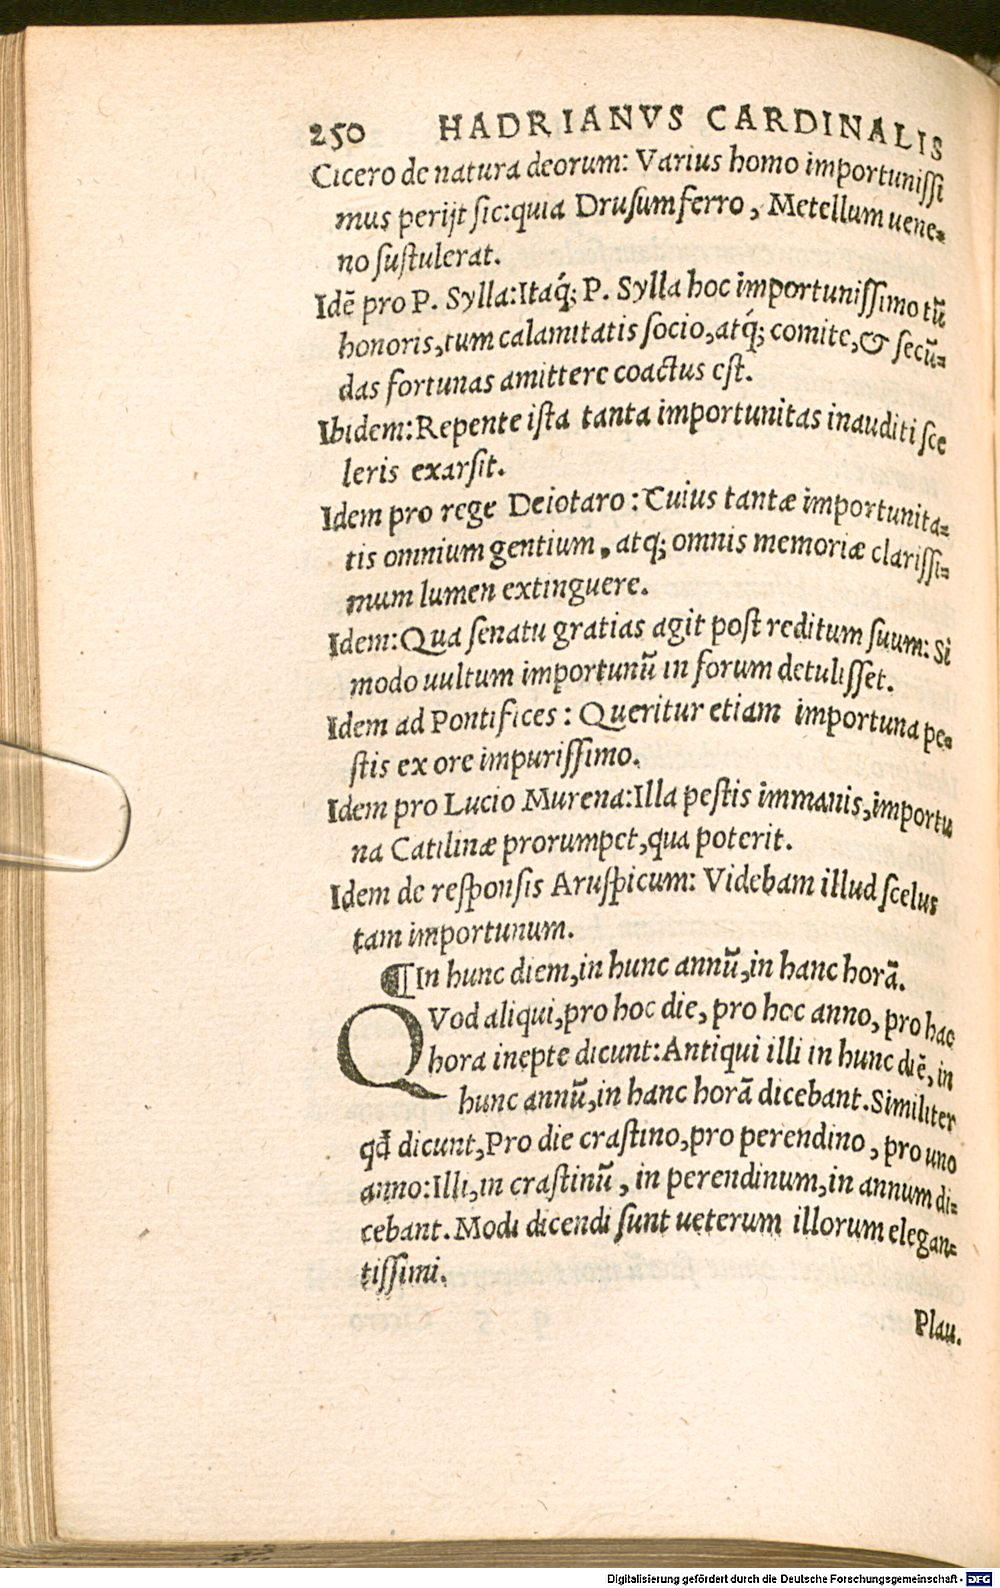 250 HADRIANVS CARDINALIS
Cicero de natura deorum: Varius homo importunissi
mus perijt sic:quia Drusum ferro, Metellum uene-
no sustulerat.
Idē pro P. Sylla:Itaq́; P. Sylla hoc importunissimo tū
honoris,tum calamitatis socio,atq́; comite,& secū-
das fortunas amittere coactus est.
Ibidem:Repente ista tanta importunitas inauditi sce
leris exarsit.
Idem pro rege Deiotaro : Cuius tantæ importunita-
tis omnium gentium, atq; omnis memoriæ clarissi-
mum lumen extinguere.
Idem:Qua senatu gratias agit post reditum suum: Si
modo uultum importunū in forum detulisset.
Idem ad Pontifices : Queritur etiam importuna pe-
stis ex ore impurissimo.
Idem pro Lucio Murena:Illa pestis immanis,importu
na Catilinæ prorumpet,qua poterit.
Idem de responsis Aruspicum: Videbam illud scelus
tam importunum.
¶In hunc diem,in hunc annū,in hanc horā.
QVod aliqui,pro hoc die, pro hoc anno, pro hac
hora inepte dicunt:Antiqui illi in hunc diē, in
hunc annū,in hanc horā dicebant.Similiter
qđ dicunt,Pro die crastino,pro perendino, pro uno
anno:Illi,in crastinū, in perendinum,in annum di-
cebant.Modi dicendi sunt ueterum illorum elegan-
tissimi.
Plau.
Digitalisierung gefördert durch die Deutsche Forschungsgemeinschaft - DFG